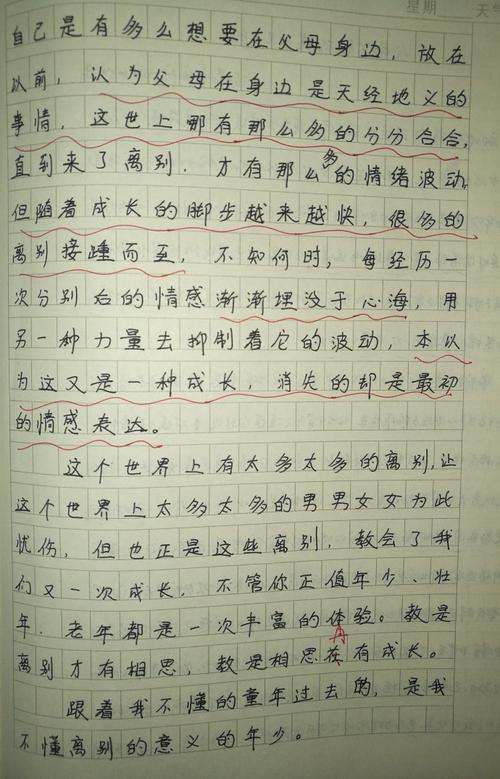 星期 天气
自己是有多么想要在父母身边,放在
以前,认为父母在身边是天经地义的
事情,这世上哪有那么多的分分合合,
直到来了离别.才有那么多的情绪波动,
但随着成长的脚步越来越快,很多的
离别接踵而至,不知何时,每经历一
次分别后的情感渐渐埋没于心海,用
另一种力量去抑制着它的波动,本以
为这又是一种成长,消失的却是最初
的情感表达。
这个世界上有太多太多的离别,让
这个世界上太多太多的男男女女为此
忧伤,但也正是这些离别,教会了我
们又一次成长,不管你正值年少、壮
年.老年都是一次丰富的体验。教是
离别才有相思,教是相思再有成长。
跟着我不懂的童年过去的,是我
不懂离别的意义的年少。